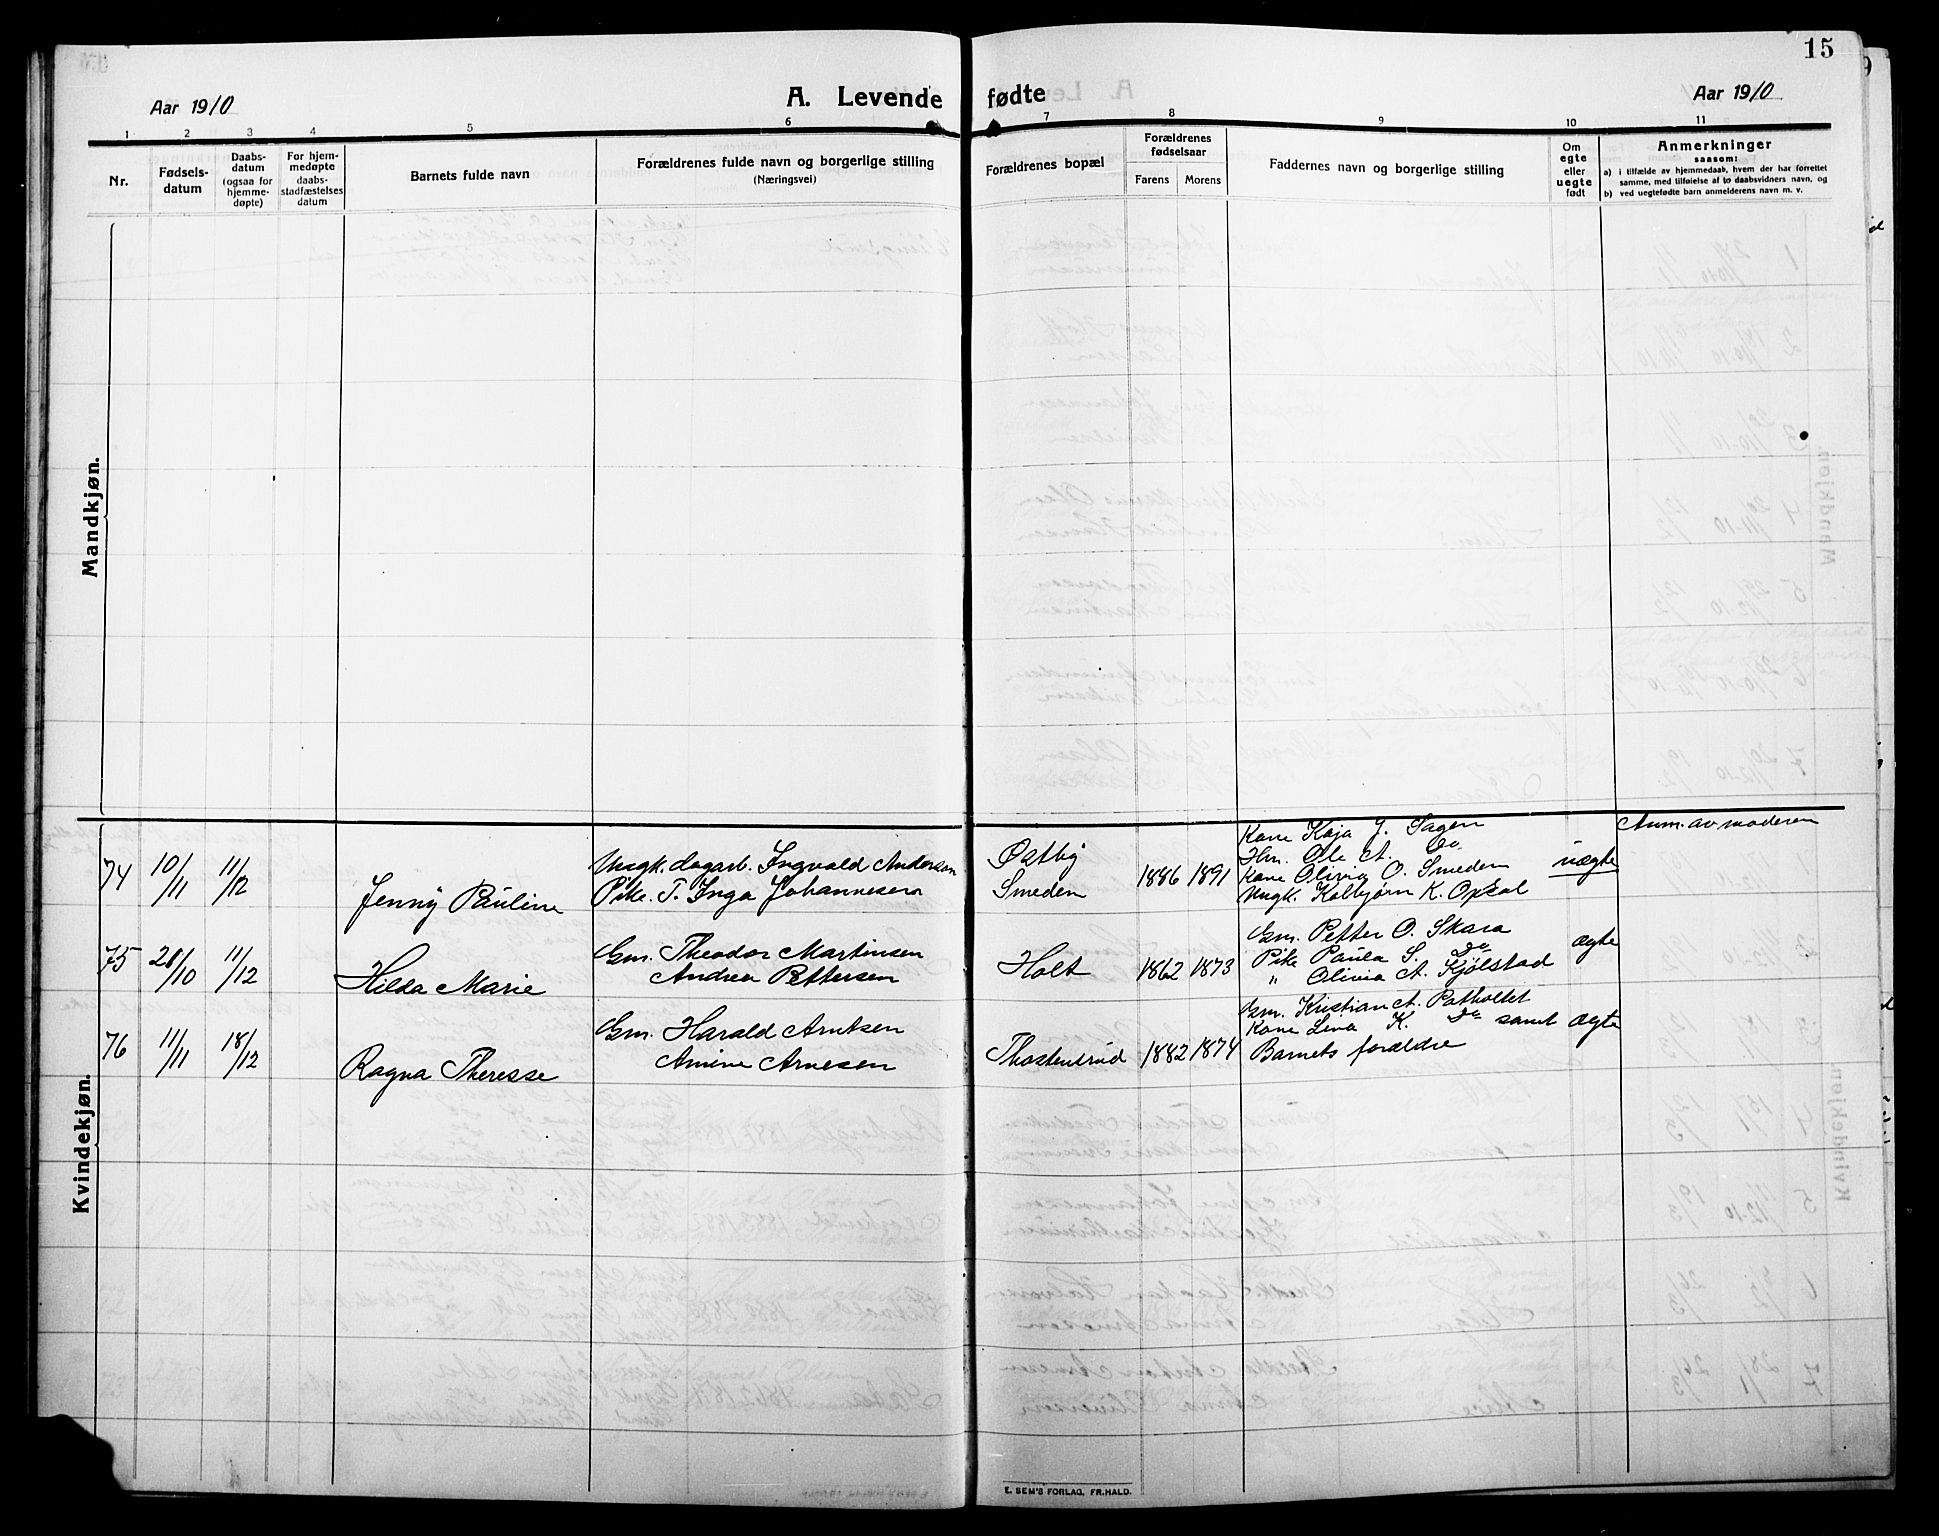 15
Aar 1910
A. Levende fødte
Aar 1910
1 2 3 4 5 6 7 8 9 10 11
Nr.
Fødsels-
datum
Daabs-
datum
(ogsaa for
hjemme-
døpte)
For hjem-
medøpte
daabs-
stadfæstelses
datum
Barnets fulde navn
Forældrenes fulde navn og borgerlige stilling
(Næringsvei)
Forældrenes bopæl
Forældrenes
fødselsaar
Farens Morens
Faddernes navn og borgerlige stilling
Om
egte
eller
uegte
født
Anmerkninger
saasom:
a) i tilfælde av hjemmedaab, hvem der har forrettet
samme, med tilføielse af to daabsvidners navn, og
b) ved uegtefødte barn anmelderens navn m. v.
Mandkjøn.
Kvindekjøn.
74 10/11 11/12 Jenny Pauline
Ungk. dagarb. Ingvald Andersen
Pike. T. Inga Johannesen
Østby
Smeden
1886 1891
Kone Kaja J. Sagen
Hm. Ole A. Do
Kone Olivia O. Smeden
Ungk. Kolbjørn K. Opsal
uægte
Anm. av moderen
75 21/10 11/12 Hilda Marie
Gm. Theodor Martinsen
Andrea Pettersen
Holt
1862 1873
Gm. Petter O. Skara
Pike Paula S. Do
" Olivia A. Kjølstad
ægte
76 11/11 18/12 Ragna Theresse
Gm. Harald Arntsen
Amine Arnesen
Thostensrud
1882 1874
Gm. Kristian A. Patholtet
Kone Lina K. Do samt
Barnets forældre
ægte
E. SEM'S FORLAG, FR.HALD.